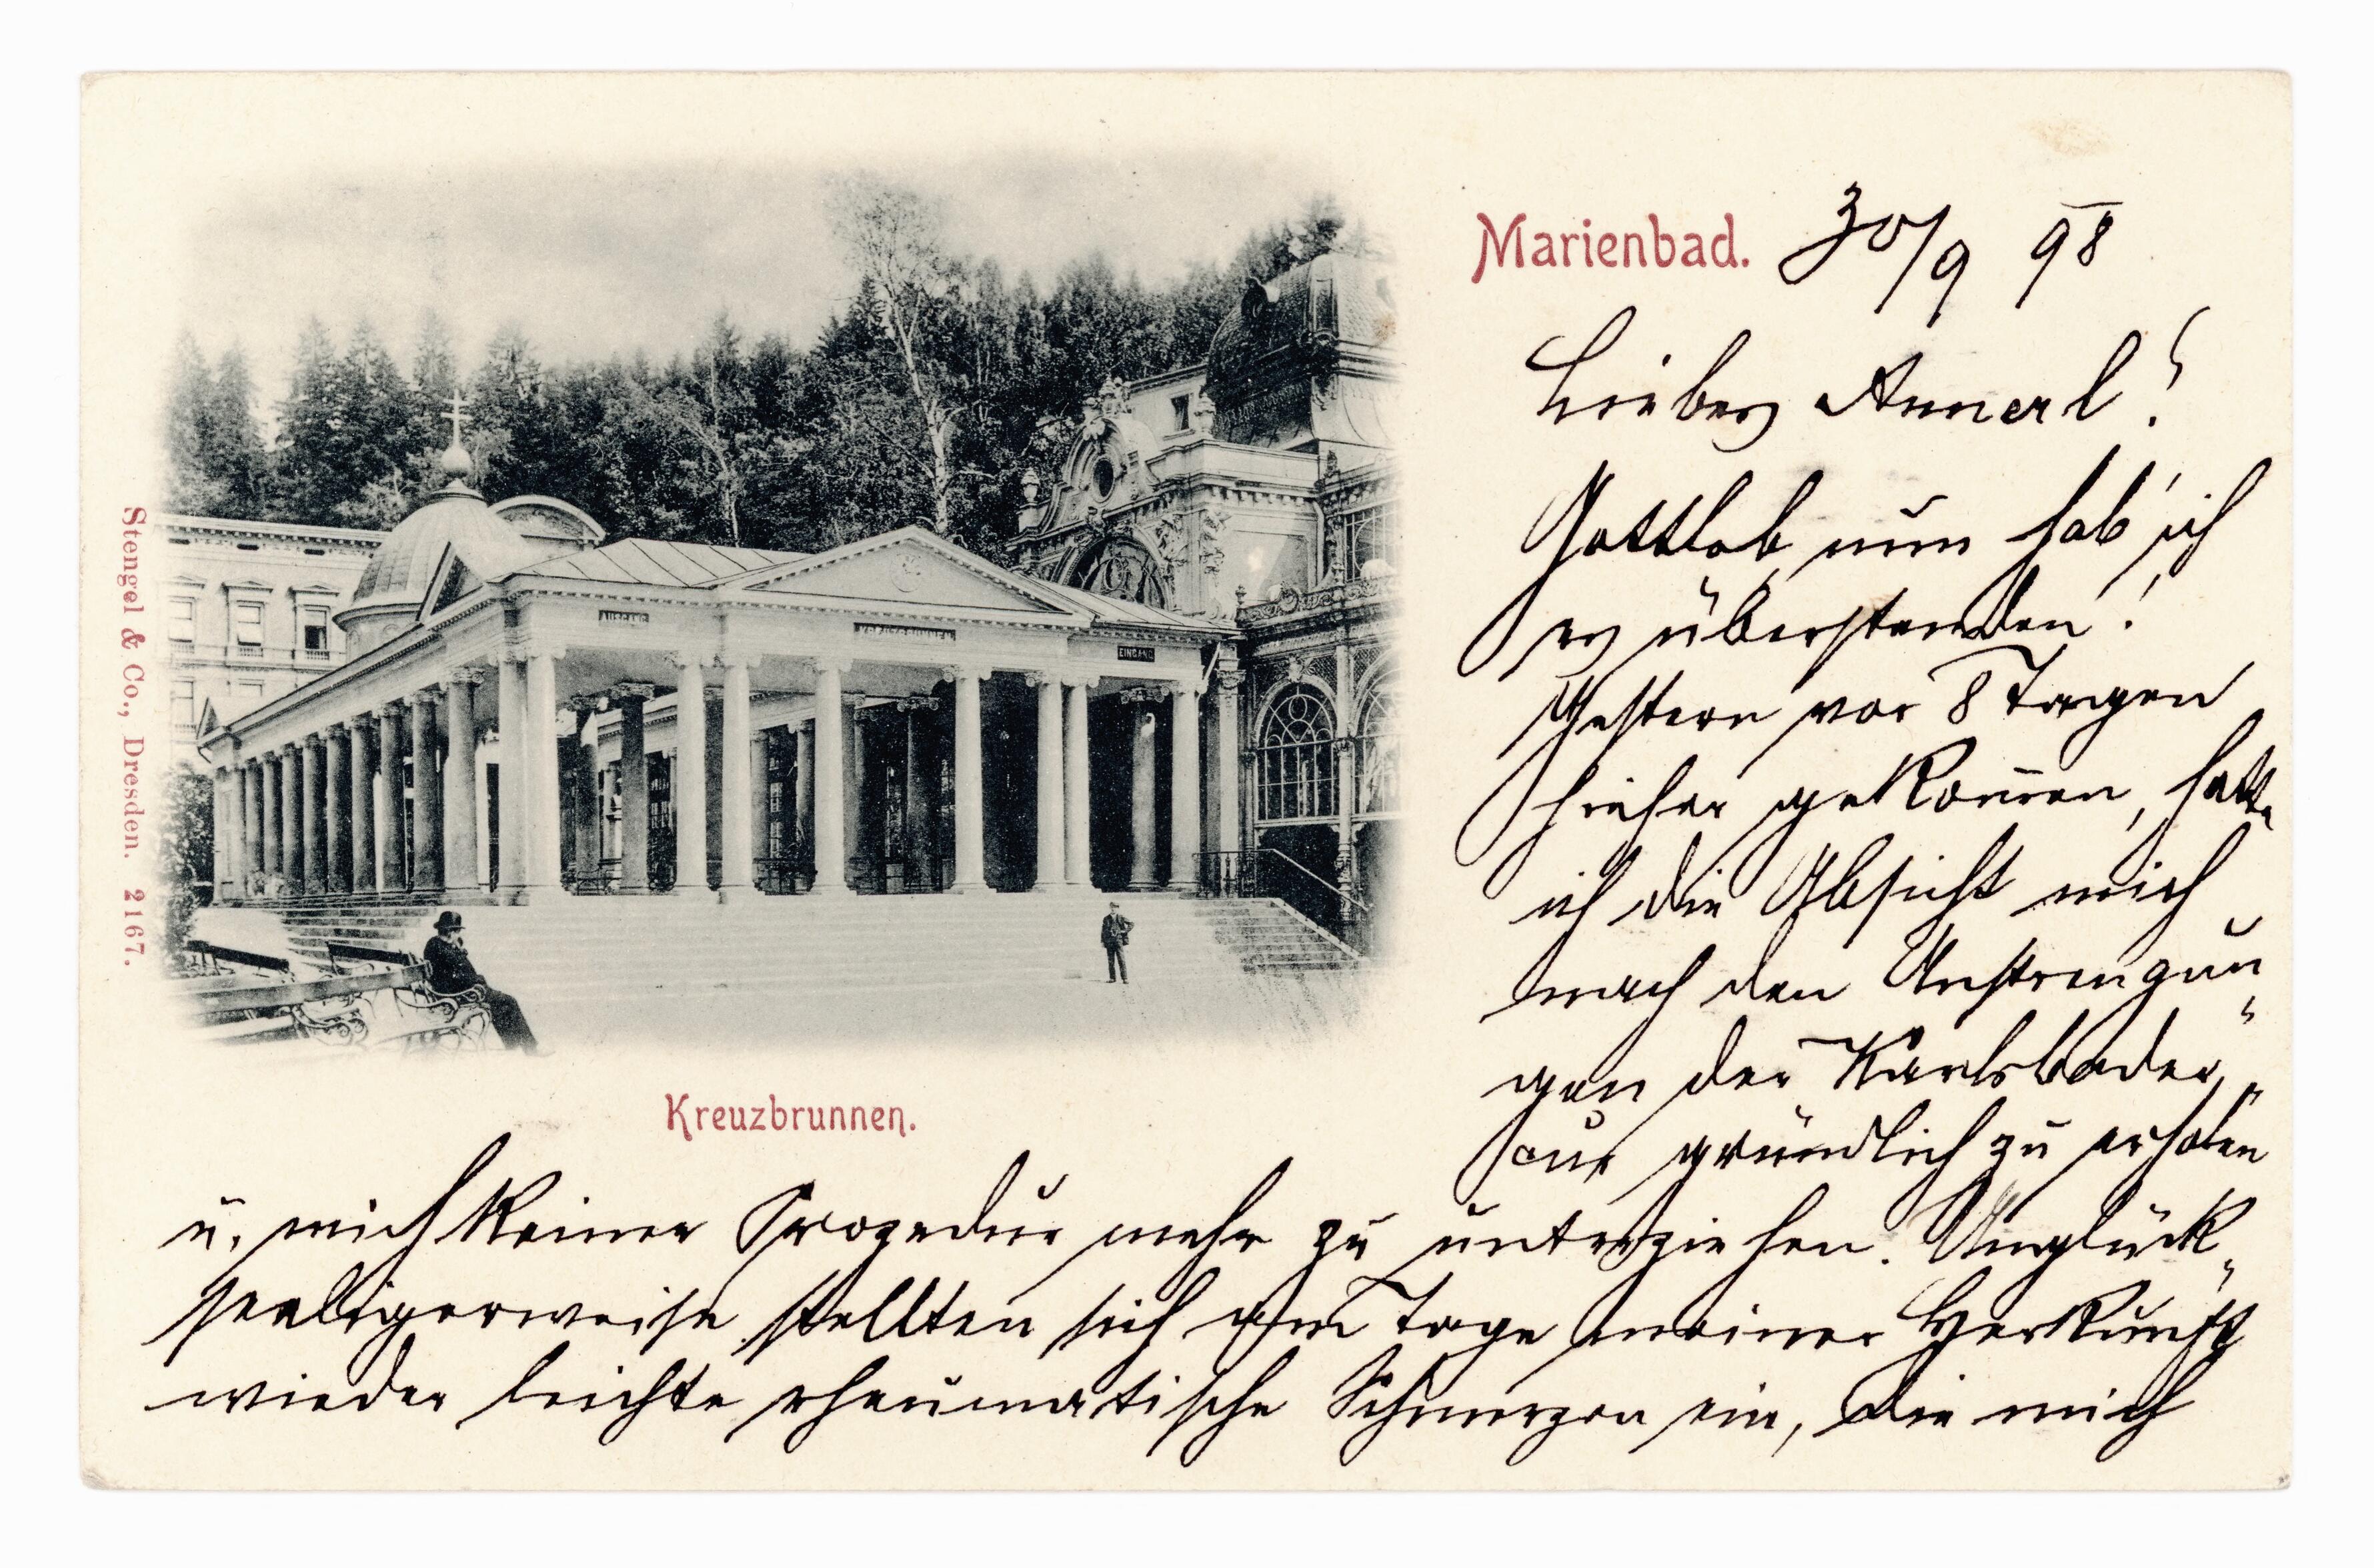 Marienbad. 30/9 98
Liebes Annerl!
Gottlob, nun hab' ich
es überstanden!
Gestern vor 8 Tagen
hieher gekom̄en, hatte
ich die Absicht mich
nach den Anstrengun„
gen der Karlsbader„
cur gründlich zu erholen
u. mich keiner Prozedur mehr zu unterziehen. Unglück„
seeligerweise stellten sich am Tage meiner Herkunft
wieder leichte rheumatische Schmerzen ein, die mich
Kreuzbrunnen.
Stengel & Co., Dresden. 2167.
AUSGANG
KREUZBRUNNEN
EINGANG